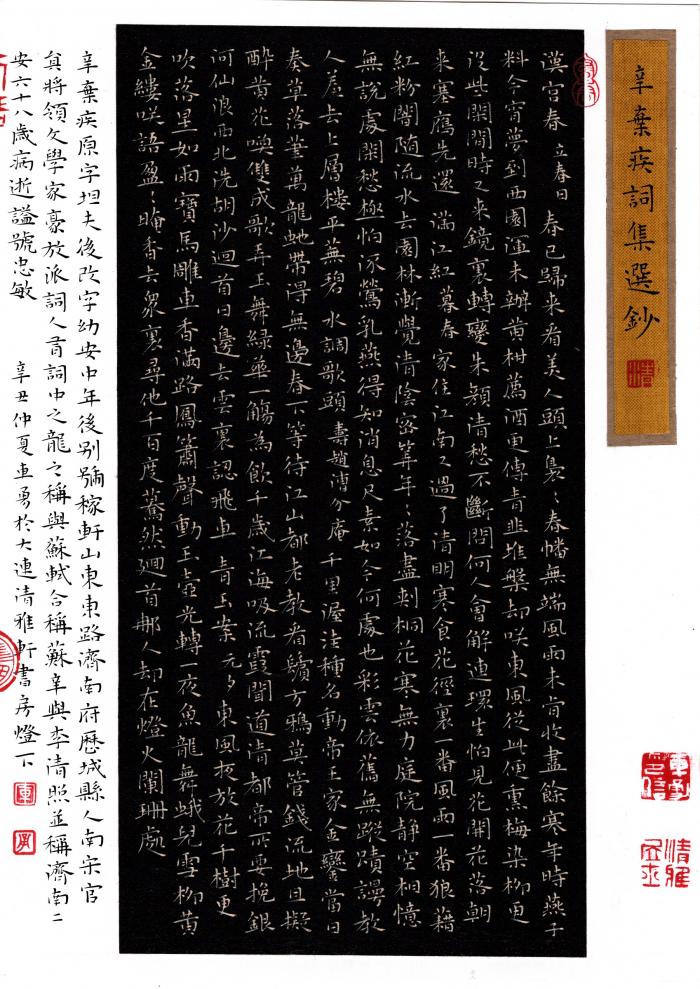 辛棄疾詞集選鈔
漢宮春 立春日 春已歸來看美人頭上裊〻春幡無端風雨未肯收盡餘寒年時燕子
料今宵夢到西園渾未辦黃柑薦酒更傳青韭堆盤却咲東風從此便熏梅染柳更
沒些閑閒時又來鏡裏轉變朱顏清愁不斷問何人會解連環生怕見花開花落朝
來塞鴈先還 滿江紅 暮春 家住江南又過了清明寒食花徑裏一番風雨一番狼藉
紅粉闇随流水去園林漸覺清陰密筭年〻落盡刺桐花寒無力庭院静空相憶
無說處閑愁極怕流鶯乳燕得知消息尺素如今何處也彩雲依舊無蹤蹟謾教
人羞去上層樓平蕪碧 水調歌頭 壽趙漕介庵 千里渥洼種名動帝王家金鑾當日
奏草落筆萬龍蛇帶得無邊春下等待江山都老教看鬢方鴉莫管錢流地且擬
醉黃花喚雙成歌弄玉舞綠華一觴為飲千歲江海吸流霞聞道清都帝所要挽銀
河仙浪西北洗胡沙迴首日邊去雲裏認飛車 青玉案 元夕 東風夜放花千樹更
吹落星如雨寶馬雕車香滿路鳳簫聲動玉壺光轉一夜魚龍舞蛾兒雪柳黃
金縷咲語盈〻暗香去衆裏尋他千百度驀然迴首那人却在燈火闌珊處
辛棄疾原字坦夫後改字幼安中年後别號稼軒山東東路濟南府歷城縣人南宋官
員將領文學家豪放派詞人有詞中之龍之稱與蘇軾合稱蘇辛與李清照並稱濟南二
安六十八歲病逝謚號忠敏 辛丑仲夏車勇於大連清雅軒書房燈下
車 勇